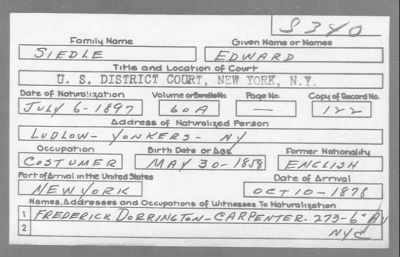 S340
Family Name Given Name or Names
SIEDLE EDWARD
Title and Location of Court
U. S. DISTRICT COURT, NEW YORK, N.Y.
Date of Naturalization Volume or Bundle No. Page No. Copy of Record No.
JULY 6-1897 60A — 122
Address of Naturalized Person
LUDLOW - YONKERS - NY
Occupation Birth Date or Age Former Nationality
COSTUMER MAY 30-1858 ENGLISH
Port of Arrival in the United States Date of Arrival
NEW YORK OCT 10-1878
Names, Addresses and Occupations of Witnesses To Naturalization
1 FREDERICK DORRINGTON - CARPENTER - 273-6" AV
2 NYC